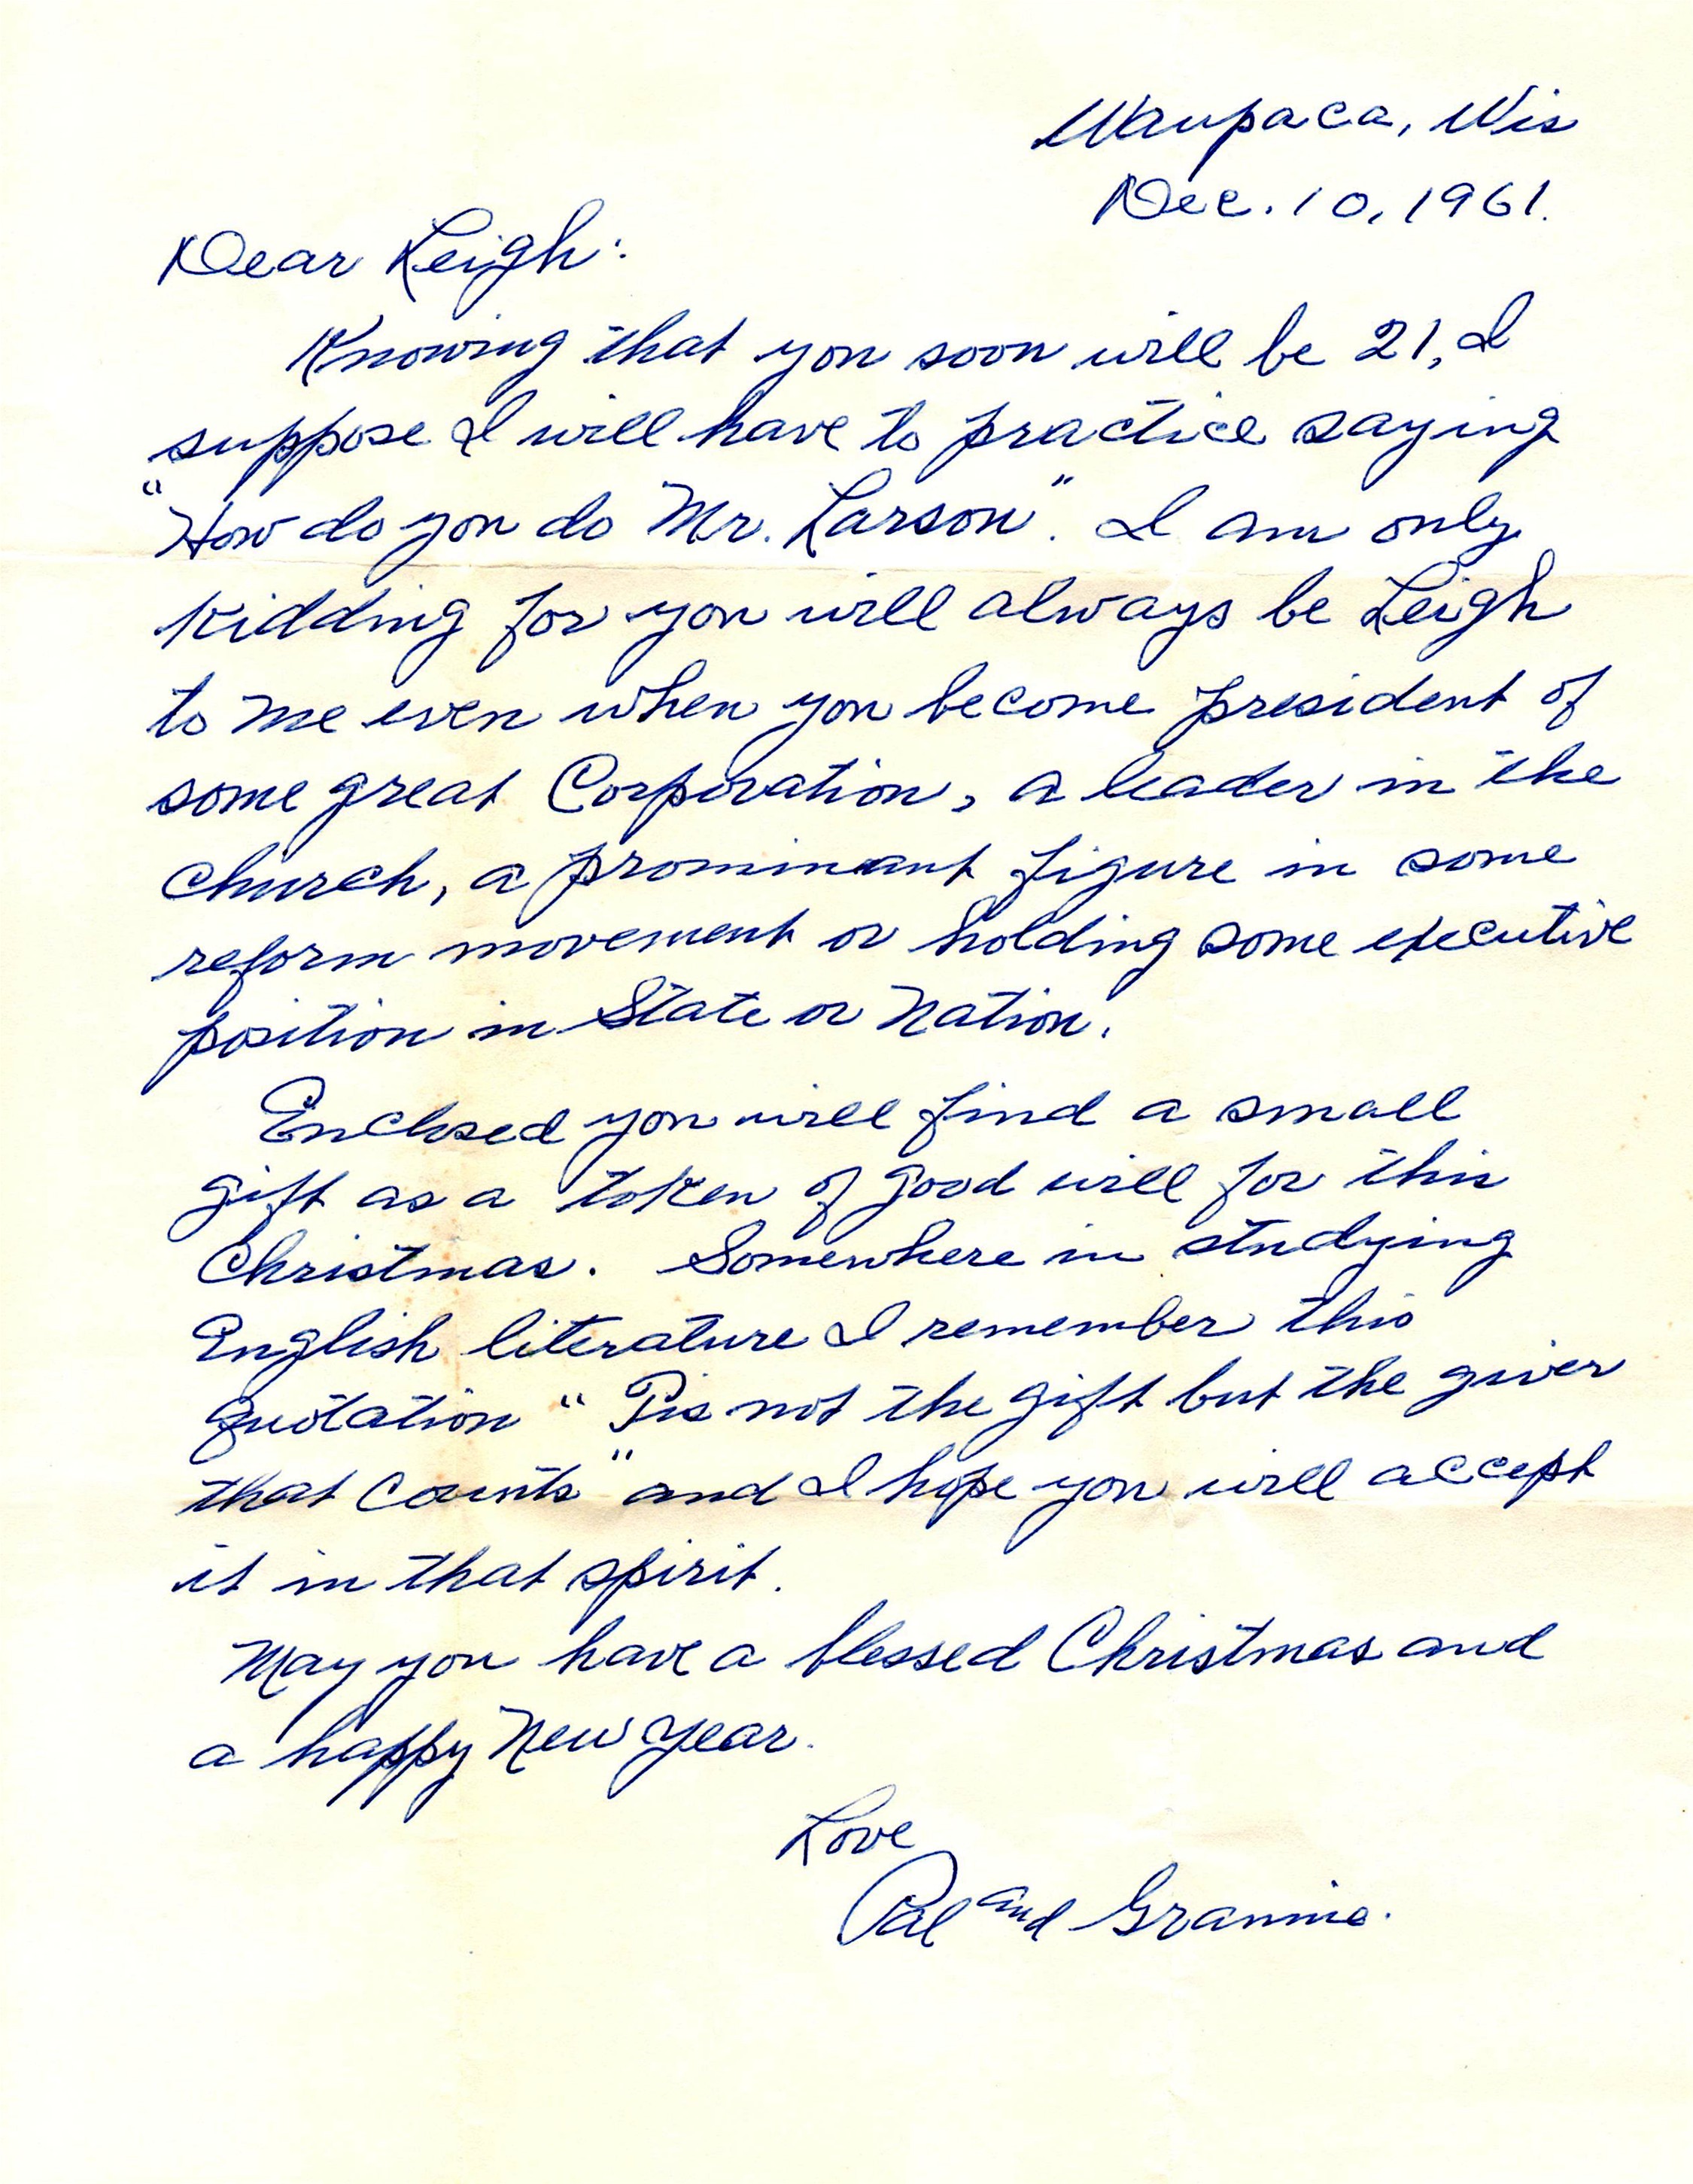 Waupaca, Wis
Dec. 10, 1961.
Dear Leigh:
Knowing that you soon will be 21, I
suppose I will have to practice saying
"How do you do Mr. Larson". I am only
kidding for you will always be Leigh
to me even when you become president of
some great Corporation, a leader in the
church, a prominant figure in some
reform movement or holding some executive
position in State or Nation.
Enclosed you will find a small
gift as a token of good will for this
Christmas. Somewhere in studying
English literature I remember this
quotation "Tis not the gift but the giver
that counts" and I hope you will accept
it in that spirit.
May you have a blessed Christmas and
a happy New Year.
Love
Pal and Grannie.